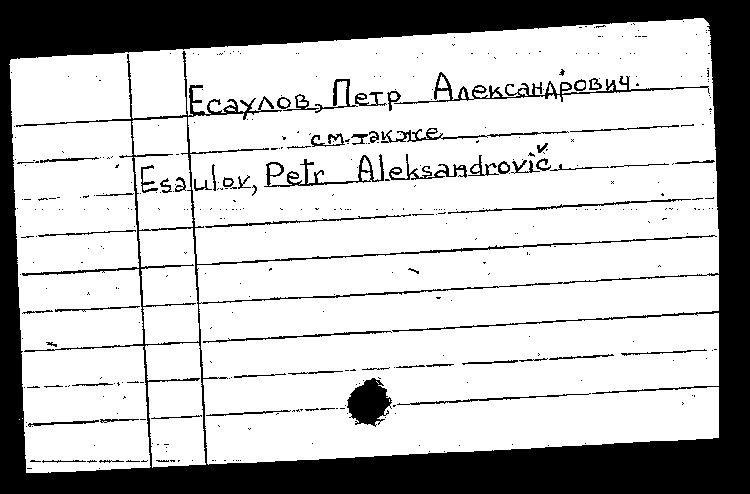 Есаулов, Петр Александрович.
см. также
Esaulov, Petr Aleksandrovič.